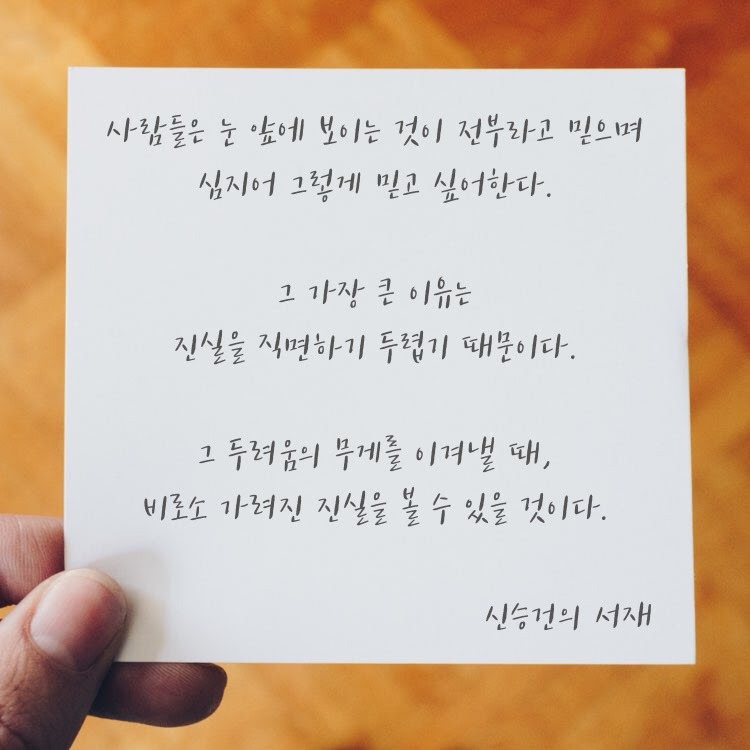 사람들은 눈 앞에 보이는 것이 전부라고 믿으며
심지어 그렇게 믿고 싶어한다.
그 가장 큰 이유는
진실을 직면하기 두렵기 때문이다.
그 두려움의 무게를 이겨낼 때,
비로소 가려진 진실을 볼 수 있을 것이다.
신승건의 서재